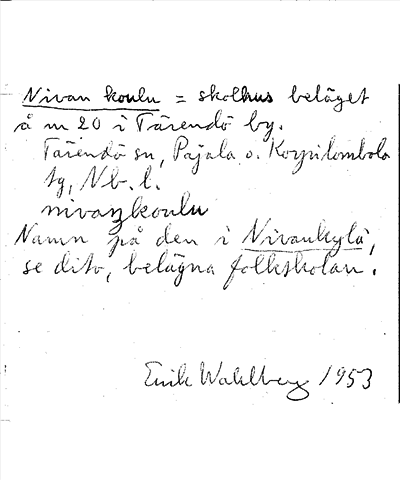 Nivan koulu = skolhus beläget
å m 20 i Tärendö by.
Tärendö sn, Pajala o. Korpilombolo
tg, Nb. l.
nivaŋkoulu
Namn på den i Nivankylä,
se dito, belägna folkskolan.
Erik Wahlberg 1953